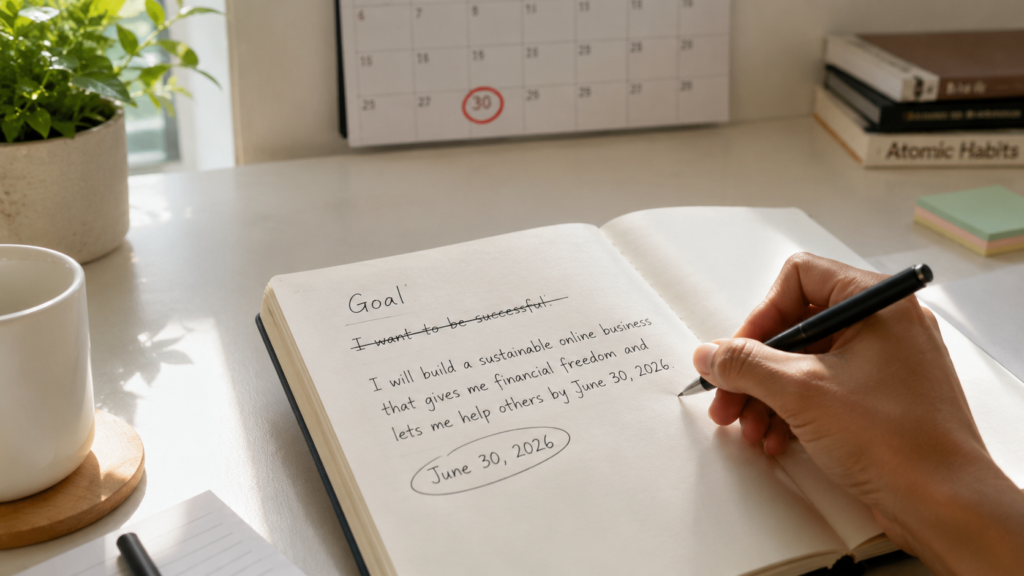 6 7 8
30
Atomic Habits
Goal
I want to be successful.
I will build a sustainable online business
that gives me financial freedom and
lets me help others by June 30, 2026.
June 30, 2026